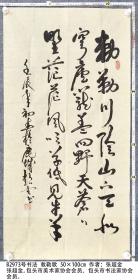 勅勒川陰山下天似
穹廬籠蓋四野天蒼
野茫茫風吹草低見牛羊
壬辰年初春
82973号书法 敕勒歌 50×100cm 作者：张超金
张超金，包头市美术家协会会员，包头市书法家协会
会员。